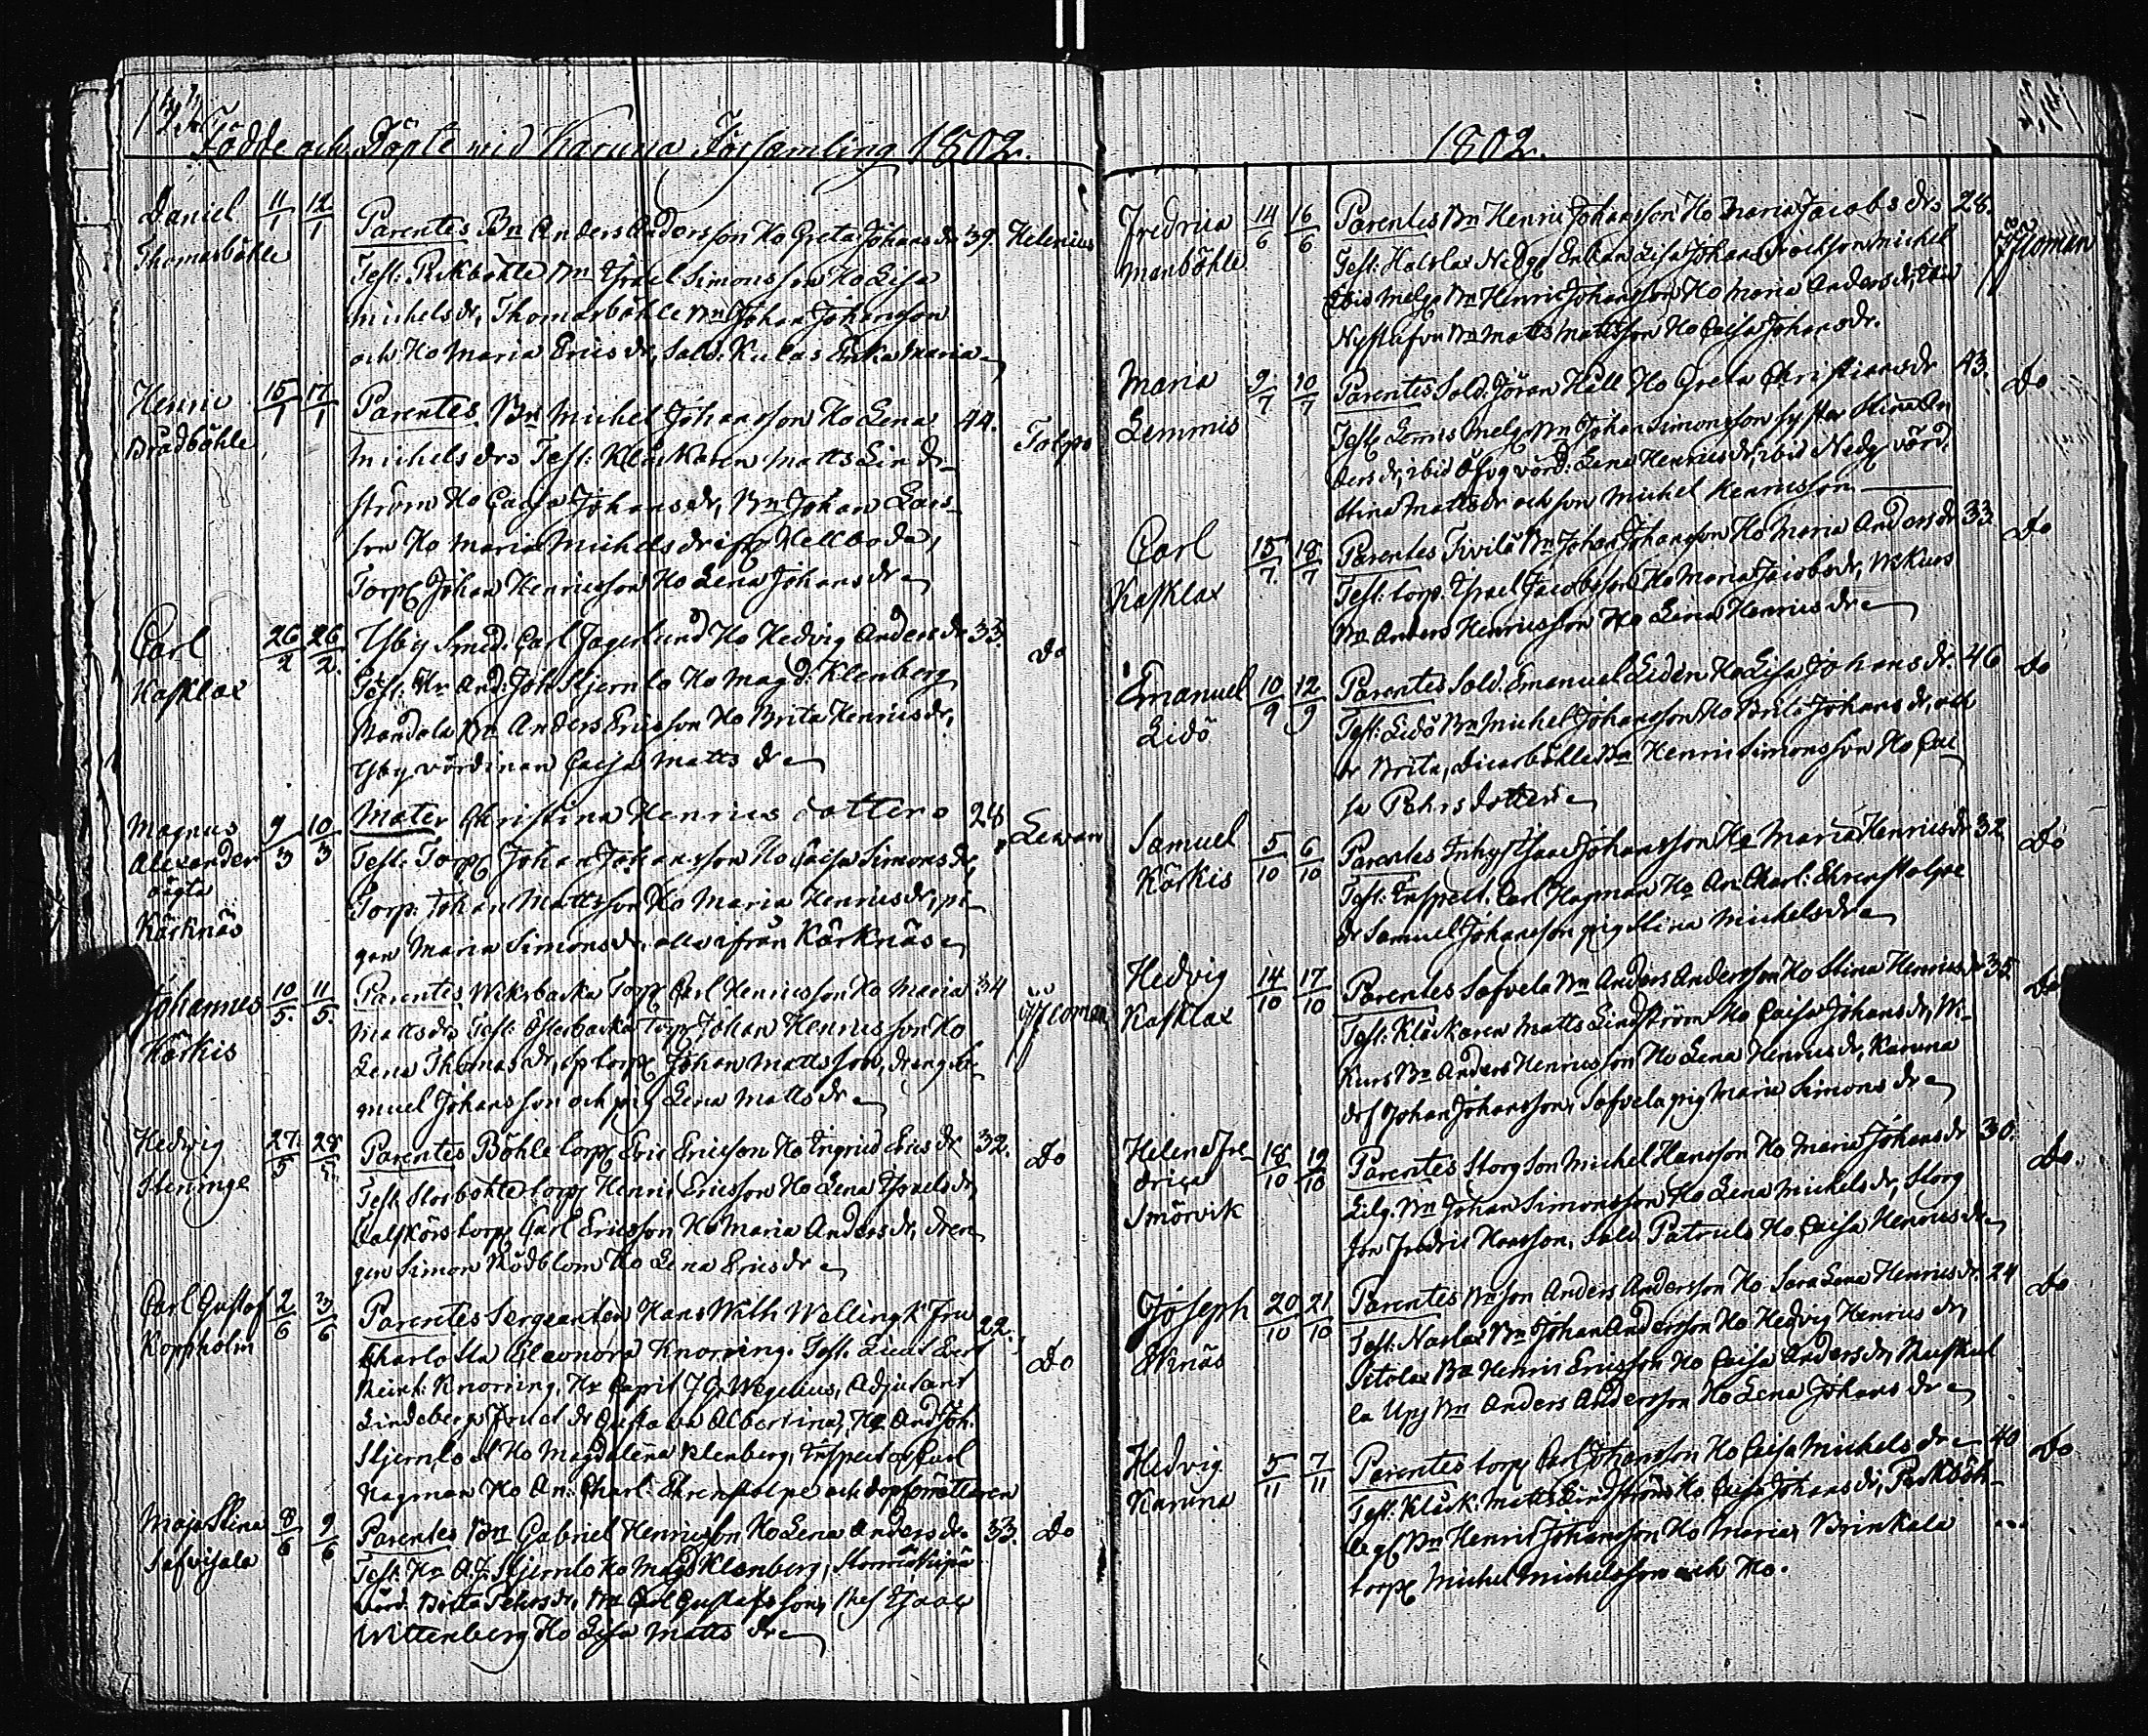 Födde och Döpte vid Karuna Församling 1802.
Daniel 11/1 12/1 Parentes Bn Anders Andersson Ho Greta Johans dr 39. Helenius
Thomasböhle Test: Pukböhle Bn Israel Simonsson Ho Lisa
Michels dr, Thomasböhle Bn Johan Johansson
och Ho Maria Erics dr, Sold. Kulas Maria
Henric 15/1 17/1 Parentes Bn Michel Johansson Ho Lena 44.
Brådböhle Michels dr Test: Klåckaren Matts Lind- Tolpo
ström Ho Caisa Johans dr, Bn Johan Lars-
son Ho Maria Michels dr
Torp Johan Henricsson Ho Lena Johans dr
Carl 26/2 26/2. Smed. Carl Jagerlund Ho Hedvig Anders dr 33. do
Kasklax Test: Hr And: Joh Stjernlo Ho Magd: Klenberg
Bn Anders Ericsson Ho Brita Henrics dr,
värdinnan Caisa Matts dr
Magnus 9/3 10/3 Mater Christina Henrics dotter 28 Lewan
Alexander Test: Torp Johan Johansson Ho Caisa Simons dr,
oägta Torp: Johan Mattsson Ho Maria Henrics dr, pi-
Kärknäs gan Maria Simons dr. alla ifrån Kärknäs
Johannes 10/5. 11/5. Parentes Wiksbacka Torp Carl Henricsson Ho Maria 34
Kärkis Matts dr Test: Österbacka Torp Johan Henricsson Ho
Lena Thomas dr, torp Johan Mattsson, dreng Sa-
muel Johansson och pig Lena Matts dr
Hedvig 27/5 28/5 Parentes Böhle torp Eric Ericsson Ho Ingrid Erics dr 32. do
Steninge Test Storböhle torp Henric Ericsson Ho Lena Israels dr,
torp Carl Ericsson Ho Maria Anders dr, dren
gen Simon Rödblom Ho Lena Erics dr
Carl Gustaf 2/6 3/6 Parentes Sergeanten Hans Wilh Wellingk Fru 22.
Koppholm Charlotta Eleonora Knorring. Test. Lieut do
Reint: Knorring, Hr Capit J G Wegelius, Adjutant
Lindeberg dr Gustava Albertina, Hr And Joh.
Stjernlo Ho Magdalena Klenberg, Inspector Carl
Hagman Ho An: Charl: Ehrenstolpe och dopförrättaren
Maja Stina 8/6 9/6 Parentes Bn Gabriel Henricsson Ho Lena Anders dr 33. do
Test: Hr A. J. Stjernlo Ho Magd Klenberg,
värd. Brita Pehrs dr, Bn Carl Gustafsson, Isaac
Wittenberg Ho Lisa Matts dr
1802.
Fredrica 14/6 16/6 Parentes Bn Henric Johansson Ho Maria Jacobs dr 28.
Manböhle Test: Nedg Enkan Lisa Johans dr och son Michel
ibid Melg Bn Henric Johansson Ho Maria Anders dr,
Bn Matts Mattsson Ho Caisa Johans dr.
Maria 9/7 10/7 Parentes Sold. Jöran Häll Ho Greta Christians dr 43. do
Lemmis Test Lemis Melg Bn Johan Simonsson syster Stina An
ders dr, ibid Öfvg värd: Lena Henrics dr, ibid Nedg värd.
Stina Matts dr och son Michel Henricsson
Carl 15/7. 18/7 Parentes Tivilä Bn Johan Johansson Ho Maria Anders dr 33 do
Kasklax Test: torp. Israel Jacobsson Ho Maria Jacobs dr,
Bn Anders Henricsson Ho Lena Henrics dr
Emanuel 10/9 12/9 Parentes Sold. Emanuel Liden Ho Lisa Johans dr. 46 do
Lidö Test: Lidö Bn Michel Johansson Ho Brita Johans dr, och
dr Brita, Bn Henric Simonsson Ho Cai
sa Pehrs dotter
Samuel 5/10 6/10 Parentes Inhys Isaac Johansson Ho Maria Henrics dr 32 do
Kärkis Test: Inspect. Carl Hagman Ho An Charl: Ehrenstolpe
dr Samuel Johansson pig Stina Michels dr
Hedvig 14/10 17/10 Parentes Safvela Bn Anders Andersson Ho Stina Henrics dr 35. do
Kasklax Test: Klåckaren Matts Lindström Ho Caisa Johans dr, Wi-
kurs Bn Anders Henricsson Ho Lena Henrics dr, Karuna
Johan Johansson, Safvela pig Maria Simons dr
Helena Fre- 18/10 19/10 Parentes Storg Son Michel Hansson Ho Maria Johans dr 30. do
drica Lilg. Bn Johan Simonsson Ho Lena Michels dr, Storg
Smörvik Son Fredric Hansson, Sold Ho Caisa Henrics dr
Joseph 20/10 21/10 Parentes Bn son Anders Andersson Ho Sara Lena Henrics dr. 24 do
Test: Bn Johan Andersson Ho Hedvig Henrics dr,
Bn Henric Ericsson Ho Caisa Anders dr,
Bn Anders Andersson Ho Lena Johans dr
Hedvig 5/11 7/11 Parentes torp Carl Johansson Ho Caisa Michels dr 40 do
Karuna Test: Klåck. Matts Lindström Ho Caisa Johans dr, Pukböh-
le Bn Henric Johansson Ho Maria, Brinkala
torp Michel Michelsson och Ho.